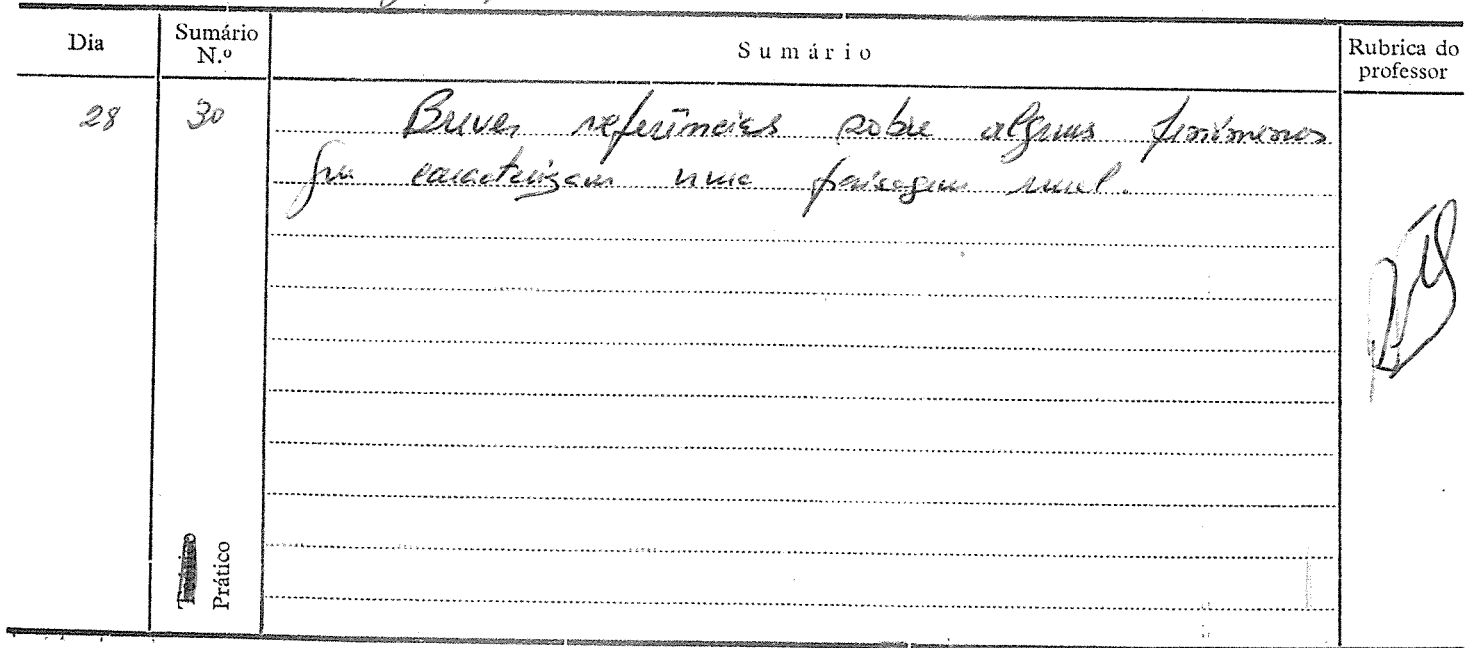 Dia
Sumário
N.º
Sumário
Rubrica do
professor
28
30
Breves referências sobre alguns fenómenos
que caracterizam uma paisagem rural.
Teórico
Prático